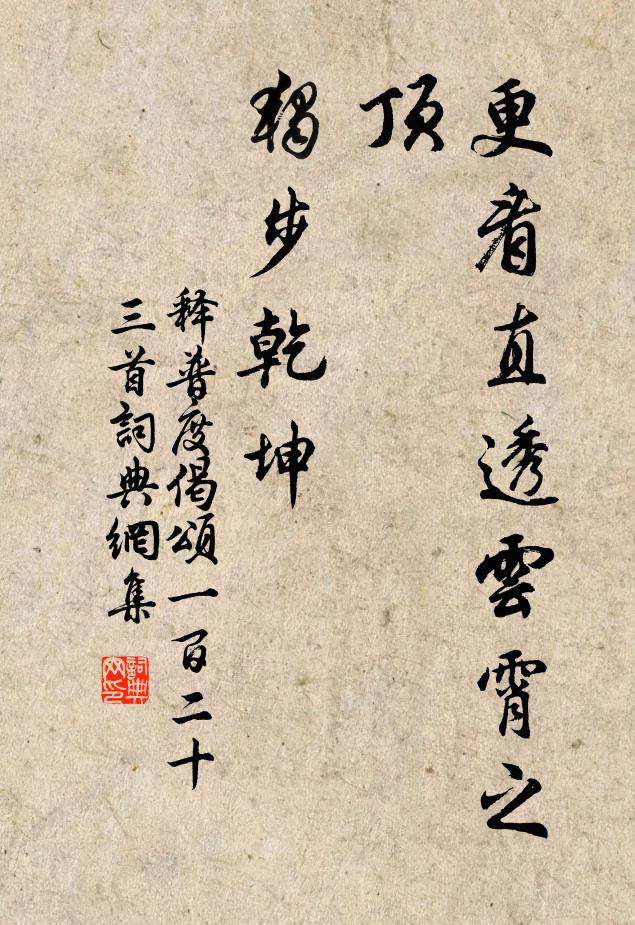 更看直透雲霄之
頂
獨步乾坤
释普度偈頌一百二十
三首詞典網集
詞典
网印